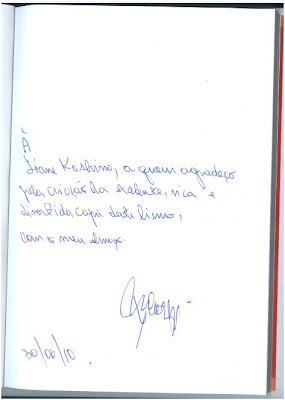 À
Liane Koshino, a quem agradeço
pela criação da excelente, rica e
divertida capa deste livro,
com o meu
30/06/10